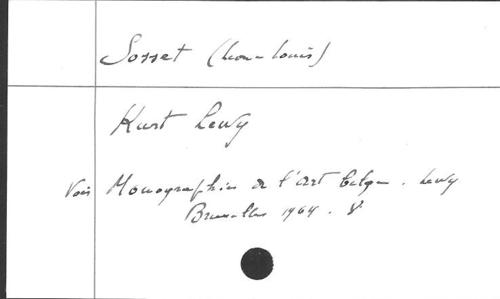 Sosset (Léon-Louis)
Kurt Lewy
Voir Monographies de l'art belge. Lewy
Bruxelles 1964. 8°